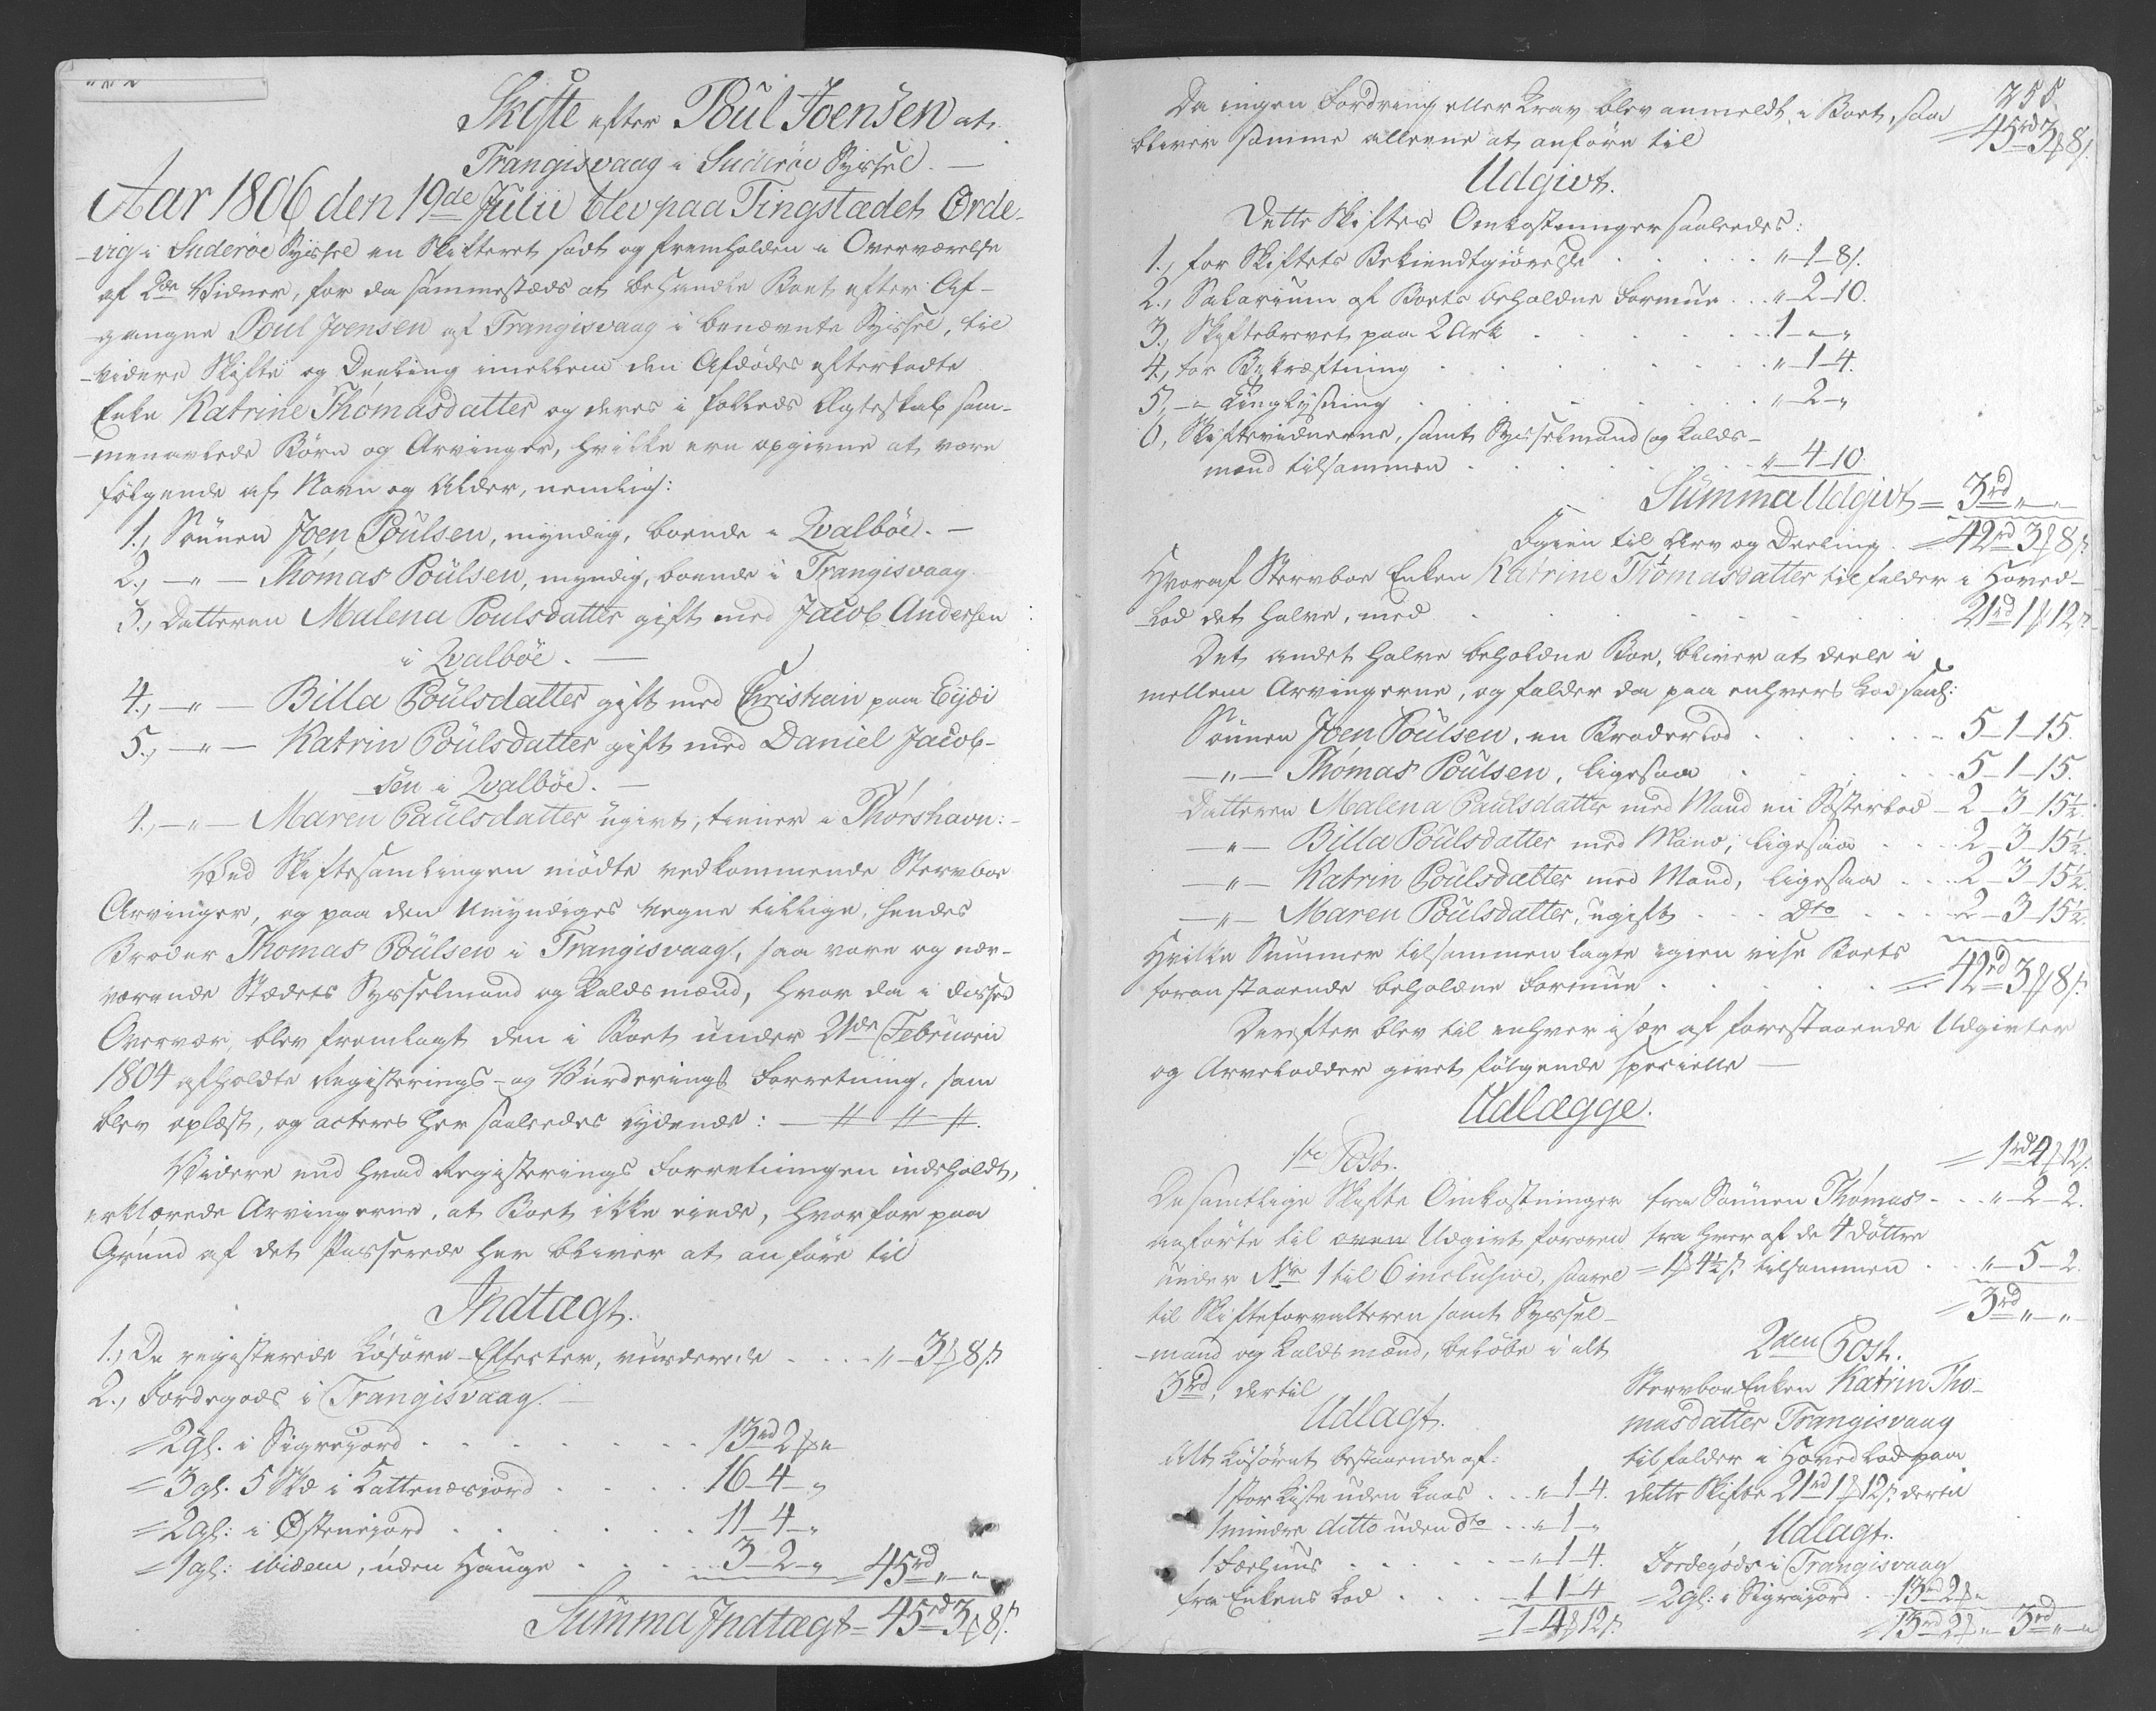 Skifte efter Poul Joensen at
Trangisvaag i Suderöe Syssel. —
Aar 1806 den 19de Julii blev paa Tingstædet Orde-
-vig i Suderöe Syssel en Skifteret sadt og fremholden i Overværelse
af 2de Vidner, for da sammestæds at behandle Boet efter Af-
-gangne Poul Joensen af Trangisvaag i benævnte Syssel, til
-videre Skifte og Deeling imellem den Afdødes efterladte
Enke Katrine Thomasdatter og deres i fælleds Ægteskab sam-
-menavlede Børn og Arvinger, hvilke ere opgivne at være
følgende af Navn og Alder, nemlig:
1., Sønnen Joen Poulsen, myndig, boende i Qvalböe. —
2., —"— Thomas Poulsen, myndig, boende i Trangisvaag
3., Datteren Malena Poulsdatter gift med Jacob Andersen
i Qvalböe. —
4., —"— Billa Poulsdatter gift med Christian paa Eijdi
5., —"— Katrin Poulsdatter gift med Daniel Jacob-
sen i Qvalböe. —
4., —"— Maren Paulsdatter ugivt, tiener i Thorshavn: -
Ved Skiftesamlingen mødte vedkommende Stervboe
Arvinger, og paa den Umyndiges Vegne tillige, hendes
Broder Thomas Poulsen i Trangisvaag, saa vare og nær-
værende Stædets Sysselmand og Laldsmænd, hvor da i disses
Overvær, blev fremlagt den i Boet under 21de Februarii
1804 afholdte Registerings- og Vurderings Forretning, som
blev oplæst, og acteres her saaleedes lydende: — // — // — //.
Videre end hvad Registerings Forretningen indeholdt,
erklærede Arvingerne, at Boet ikke eiede, hvorfor paa
Grund af det Passerede her bliver at anføre til
Indtægt.
1., De registerede Løsøre-Effecter, vurderede . . . . " — 3 ß 8 s
2., Jordegods i Trangisvaag. —
= 2 gl. i Sigrejord . . . . . . . 13 rd 2 ß "
= 3 gl. 5 Skd i Kattenæsjord . . . . 16 — 4 — "
= 2 gl: i Østenjord . . . . . . 11 — 4 — "
= 1 gl: ibidem, uden Hauge . . . 3 — 2 — " = 45 rd " — "
Summa Indtægt = 45 rd 3 ß 8 s.
255.
Da ingen Fordring eller Krav blev anmeldt i Boet, saa = 45 rd 3 ß 8 s.
bliver samme alleene at anføre til
Udgivt.
Dette Skiftes Omkostninger saaleedes:
1., for Skiftets Bekiendtgiørelse . . . . . " — 1 — 8 s.
2., Salarium af Boets beholdne Formue . . . " — 2 — 10.
3., Skiftebrevet paa 2 Ark . . . . . . 1 — " — "
4., for Bekræftning . . . . . . . " — 1 — 4.
5., — " Tinglysning . . . . . . . " — 2 — "
6, Skiftevidnerne, samt Sysselmand og Lalds-
mænd tilsammen . . . . . . . " — 4 — 10.
Summa Udgivt = 3 rd " — "
Igien til Arv og Deeling . = 42 rd 3 ß 8 s.
Hvoraf Stervboe Enken Katrine Thomasdatter tilfalder i Hoved-
-Lod det halve, med . . . . . . . 21 rd 1 ß 12 s.
Det andet halve beholdne Boe, bliver at deele i
mellem Arvingerne, og falder da paa enhvers Lod saal:
Sønnen Joen Poulsen, en Broderlod . . . . . 5 — 1 — 15.
—"— Thomas Poulsen, ligesaa . . . . . 5 — 1 — 15.
Datteren Malena Paulsdatter med Mand en Søsterlod — 2 — 3 — 15½.
—"— Billa Poulsdatter med Mand, ligesaa . . . 2 — 3 — 15½.
—"— Katrin Poulsdatter med Mand, ligesaa . . . 2 — 3 — 15½.
—"— Maren Poulsdatter, ugift . . . Dto . . . 2 — 3 — 15½.
Hvilke Summer tilsammenlagte igien vise Boets
foranstaaende beholdne Formue . . . . . = 42 rd 3 ß 8 s.
Derefter blev til enhver især af forestaaende Udgivter
og Arvelodder givet følgende specielle —
Udlægge.
1te Post.
De samtlige Skifte Omkostninger
anførte til oven Udgivt foroven
under No 1 til 6 inclusive, saavel
til Skifteforvalteren samt Syssel-
-mand og Laldsmænd, beløbe i alt
3 rd, dertil
Udlagt.
Alt Løsøret bestaaende af:
1 stor Kiste uden Laas . . . " — 1 — 4.
1 mindre ditto uden dto . . . " — 1 — "
1 Færhuus . . . . . . " — 1 — 4.
fra Enkens Lod . . . . 1 — 1 — 4
= 1 — 4 ß 12 s.
= 1 rd 4 ß 12 s.
fra Sønnen Thomas . . . " — 2 — 2.
fra hver af de 4 Døttre
= 1 ß 4½ s. tilsammen . . . " — 5 — 2.
= 3 rd " — "
2den Post.
Stervboe Enken Katrin Tho-
masdatter Trangisvaag
tilfalder i Hoved Lod paa
dette Skifte 21 rd 1 ß 12 s. dertil
Udlagt.
Jordegods i Trangisvaag
= 2 gl: i Sigrajord . 13 rd 2 ß "
= 13 rd 2 ß " — 3 rd " — "